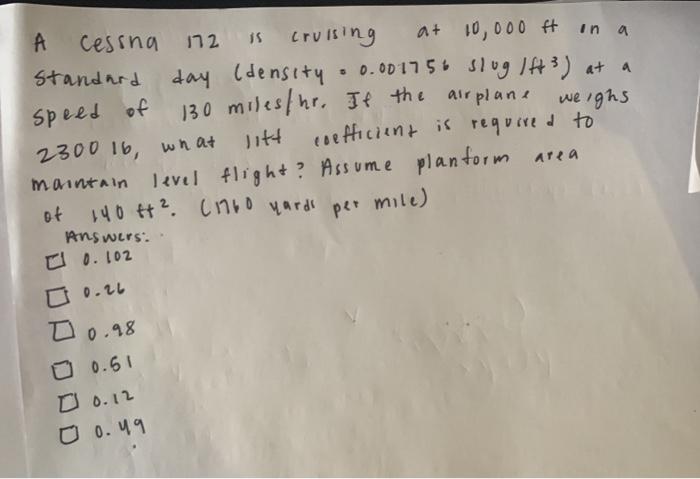 A Cessna 172 is cruising at 10,000 ft on a
standard day (density = 0.001756 slug/ft³) at a
speed of 130 miles/hr. If the airplane weighs
2300 lb, what lift coefficient is required to
maintain level flight? Assume planform area
of 140 ft². (1760 yards per mile)
Answers:
0.102
0.26
0.98
0.51
0.12
0.49